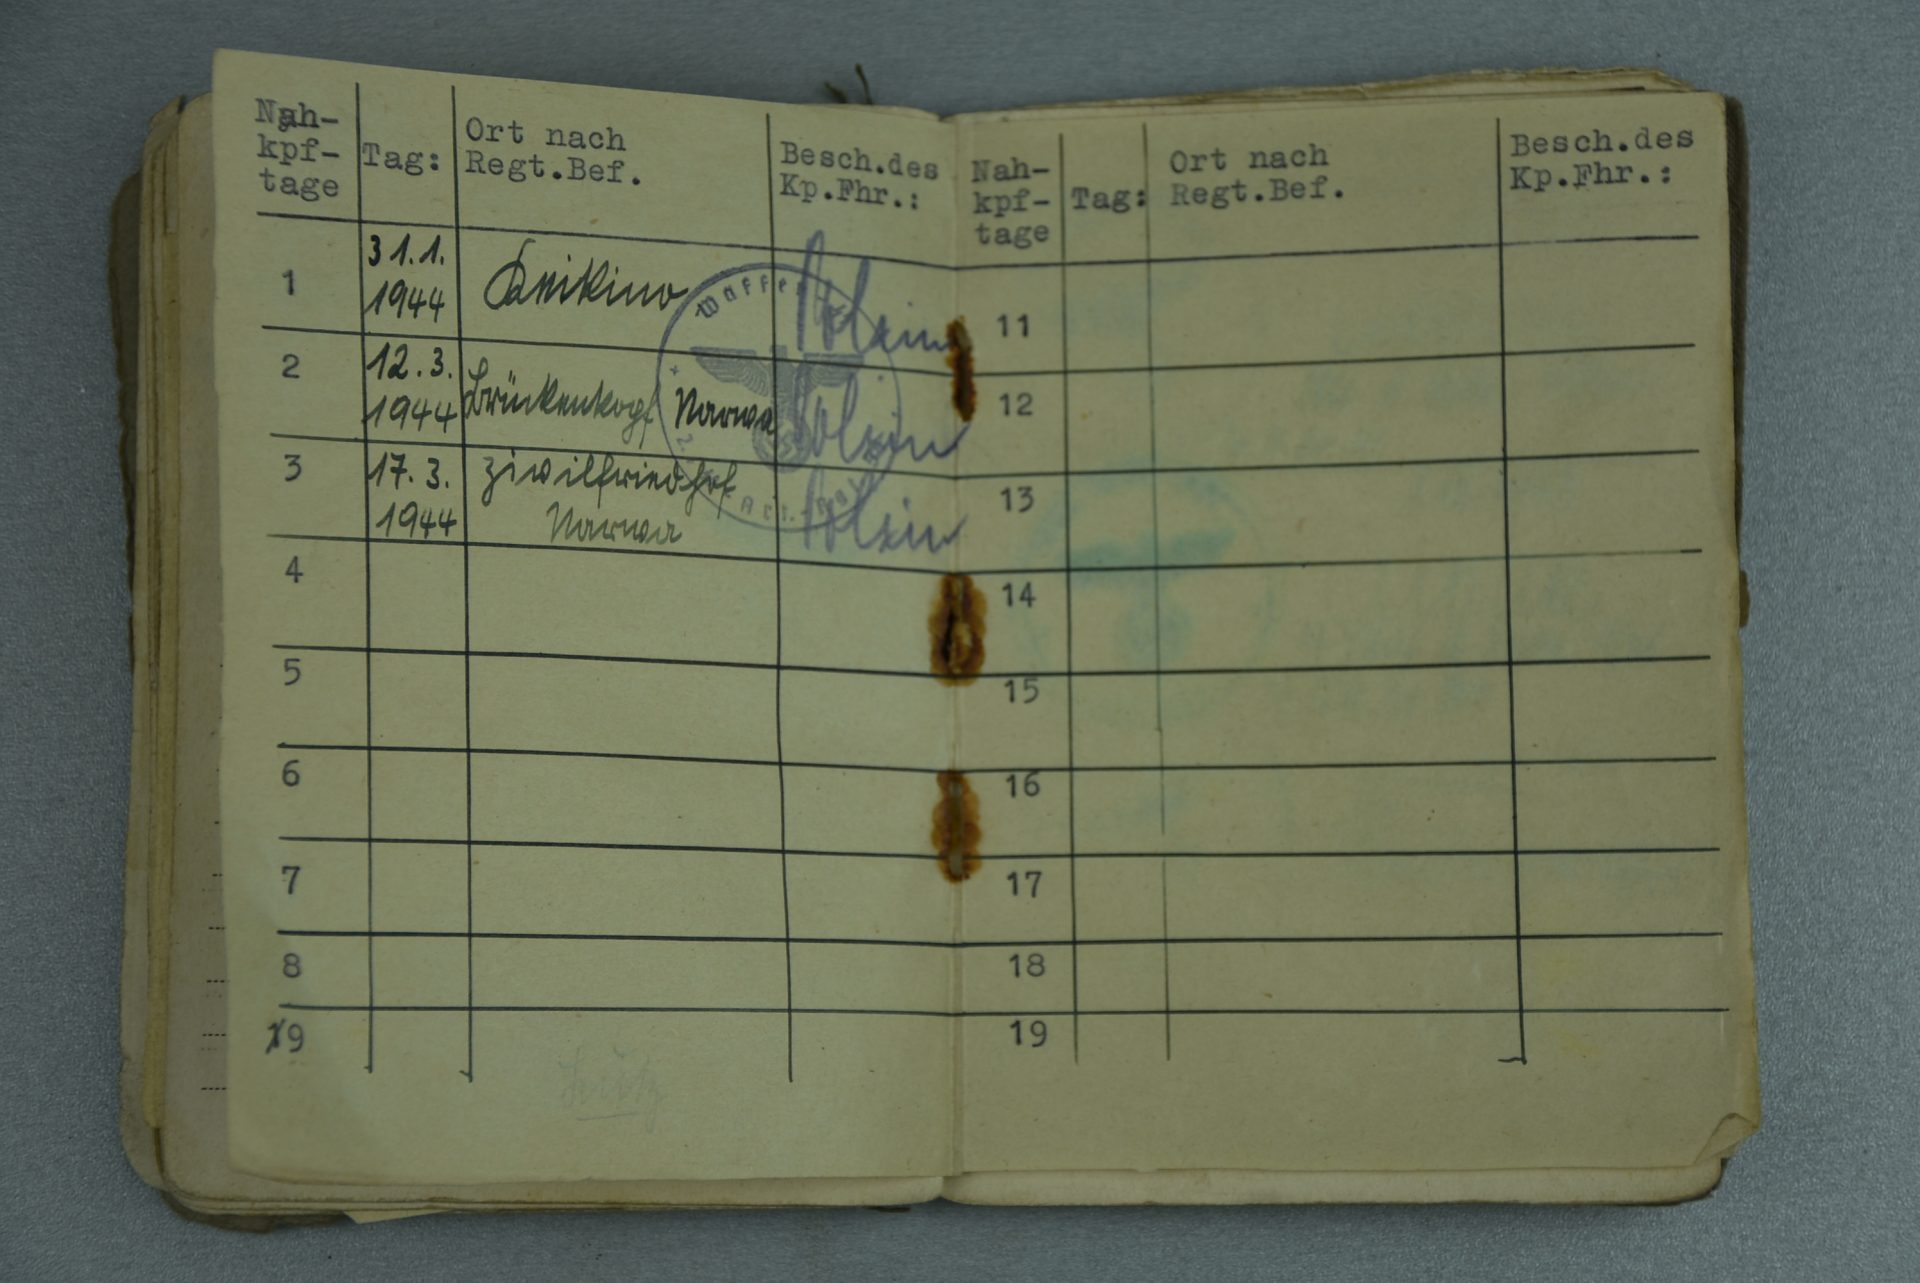 Nah-
kpf-
tage
Tag:
Ort nach
Regt.Bef.
Besch.des
Kp.Fhr.:
1
31.1.
1944
Waffen
2
12.3.
1944
Brückenkopf Narwa
3
17.3.
1944
Zivilfriedhof
Narwa
4
5
6
7
8
19
Nah-
kpf-
tage
Tag:
Ort nach
Regt.Bef.
Besch.des
Kp.Fhr.:
11
12
13
14
15
16
17
18
19